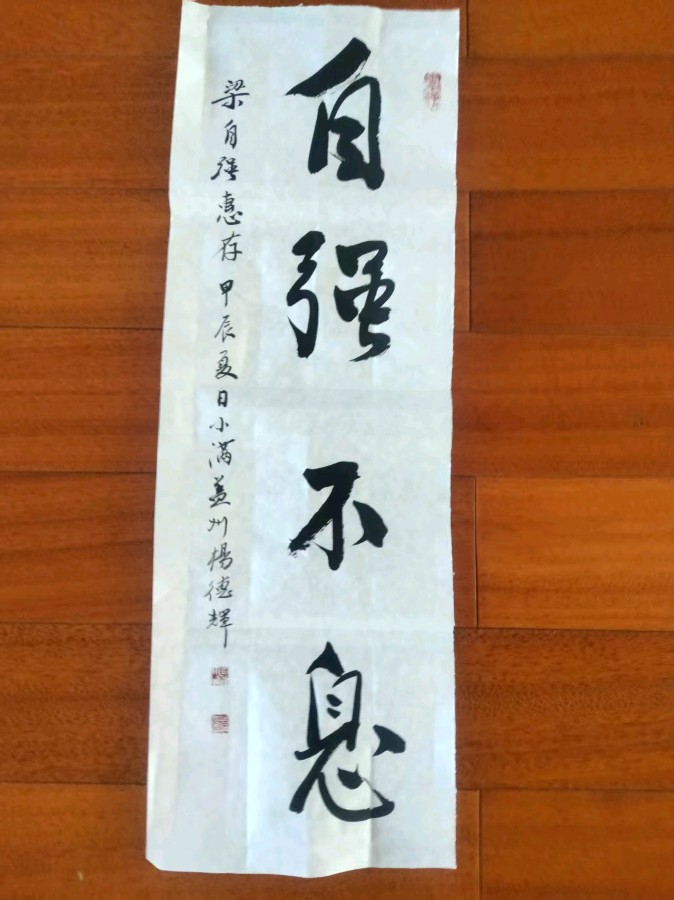 自强不息
梁自强惠存 甲辰夏日小满盖州杨德辉